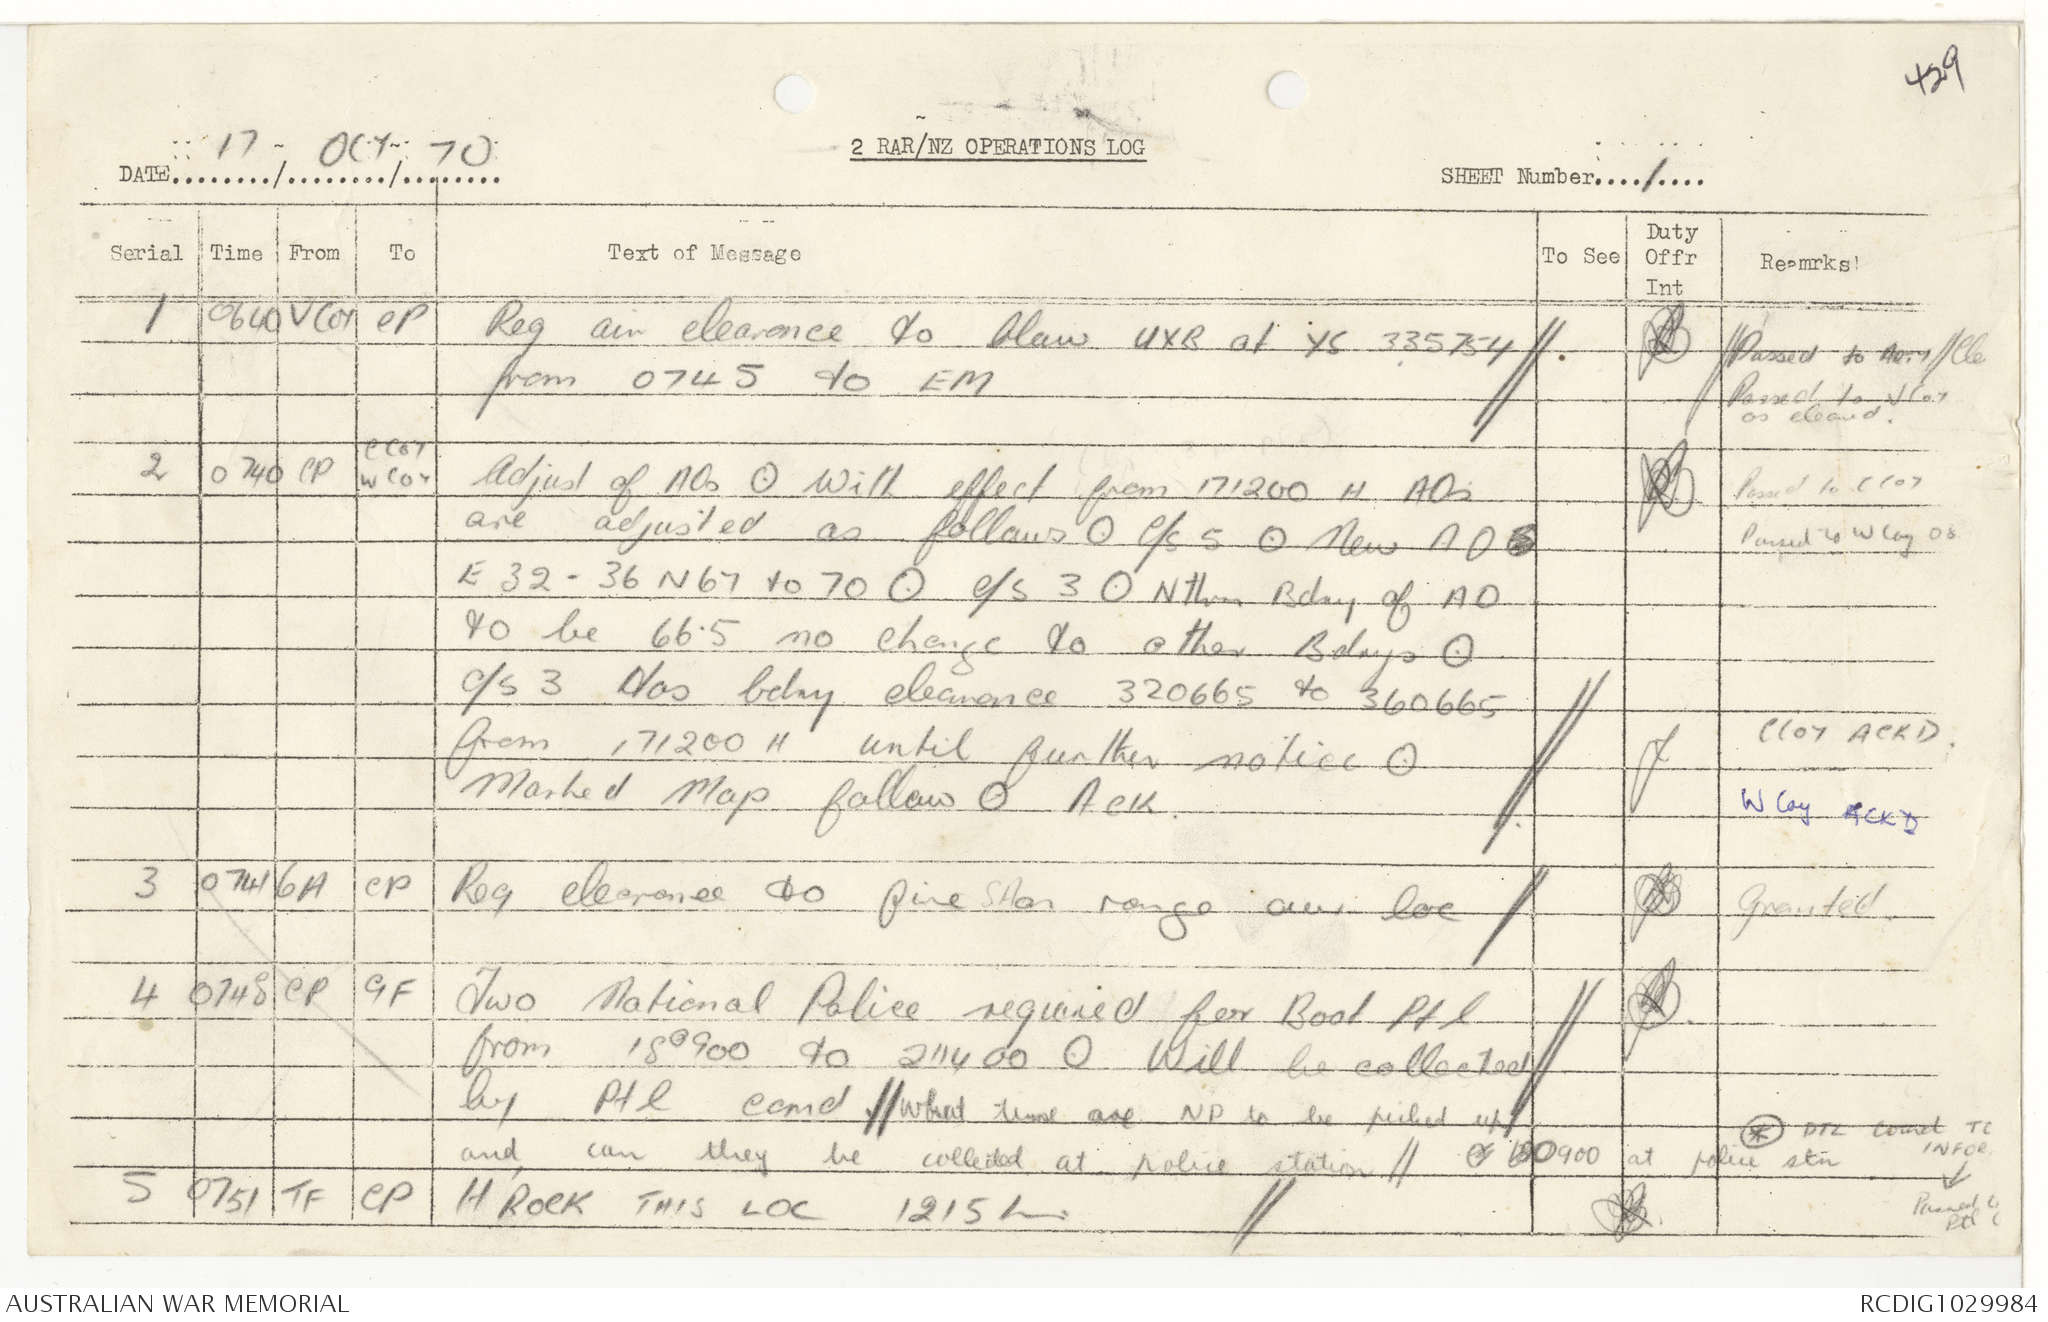 429
17 OCT 70
2 RAR/NZ OPERATIONS LOG
DATE......../......../........
SHEET Number..../....
Serial Time From To Text of Message To See Duty Offr Int Reamrks!
1 0640 V Coy CP Req air clearence to blow UXB at YS 335754 // Passed to
from 0745 to EM Passed to V Coy
as cleared.
C Coy
2 0740 CP W Coy Adjust of AOs O With effect from 171200 H AOs Passed to C Coy
are adjusted as follows O C/S 5 O New AO Passed to W Coy 08
E 32 - 36 N 67 to 70 O C/S 3 O Nthn Bdry of AO
to be 66.5 no change to other Bdrys O
C/S 3 Has bdry clearence 320665 to 360665
from 171200 H until further notice O C Coy ACKD.
Marked Map follow O ACK. // W Coy ACKD
3 0741 6A CP Req clearence to fire range our loc // Granted.
4 0748 CP 9F Two National Police required for Boat Ptl
from 180900 to 211400 O Will be collected
by Ptl comd // What time are NP to be picked up
and can they be collected at police station // 180900 at police stn
* INFOR
5 0751 TF CP H ROCK THIS LOC 1215 h //
Passed
Ptl C
AUSTRALIAN WAR MEMORIAL
RCDIG1029984